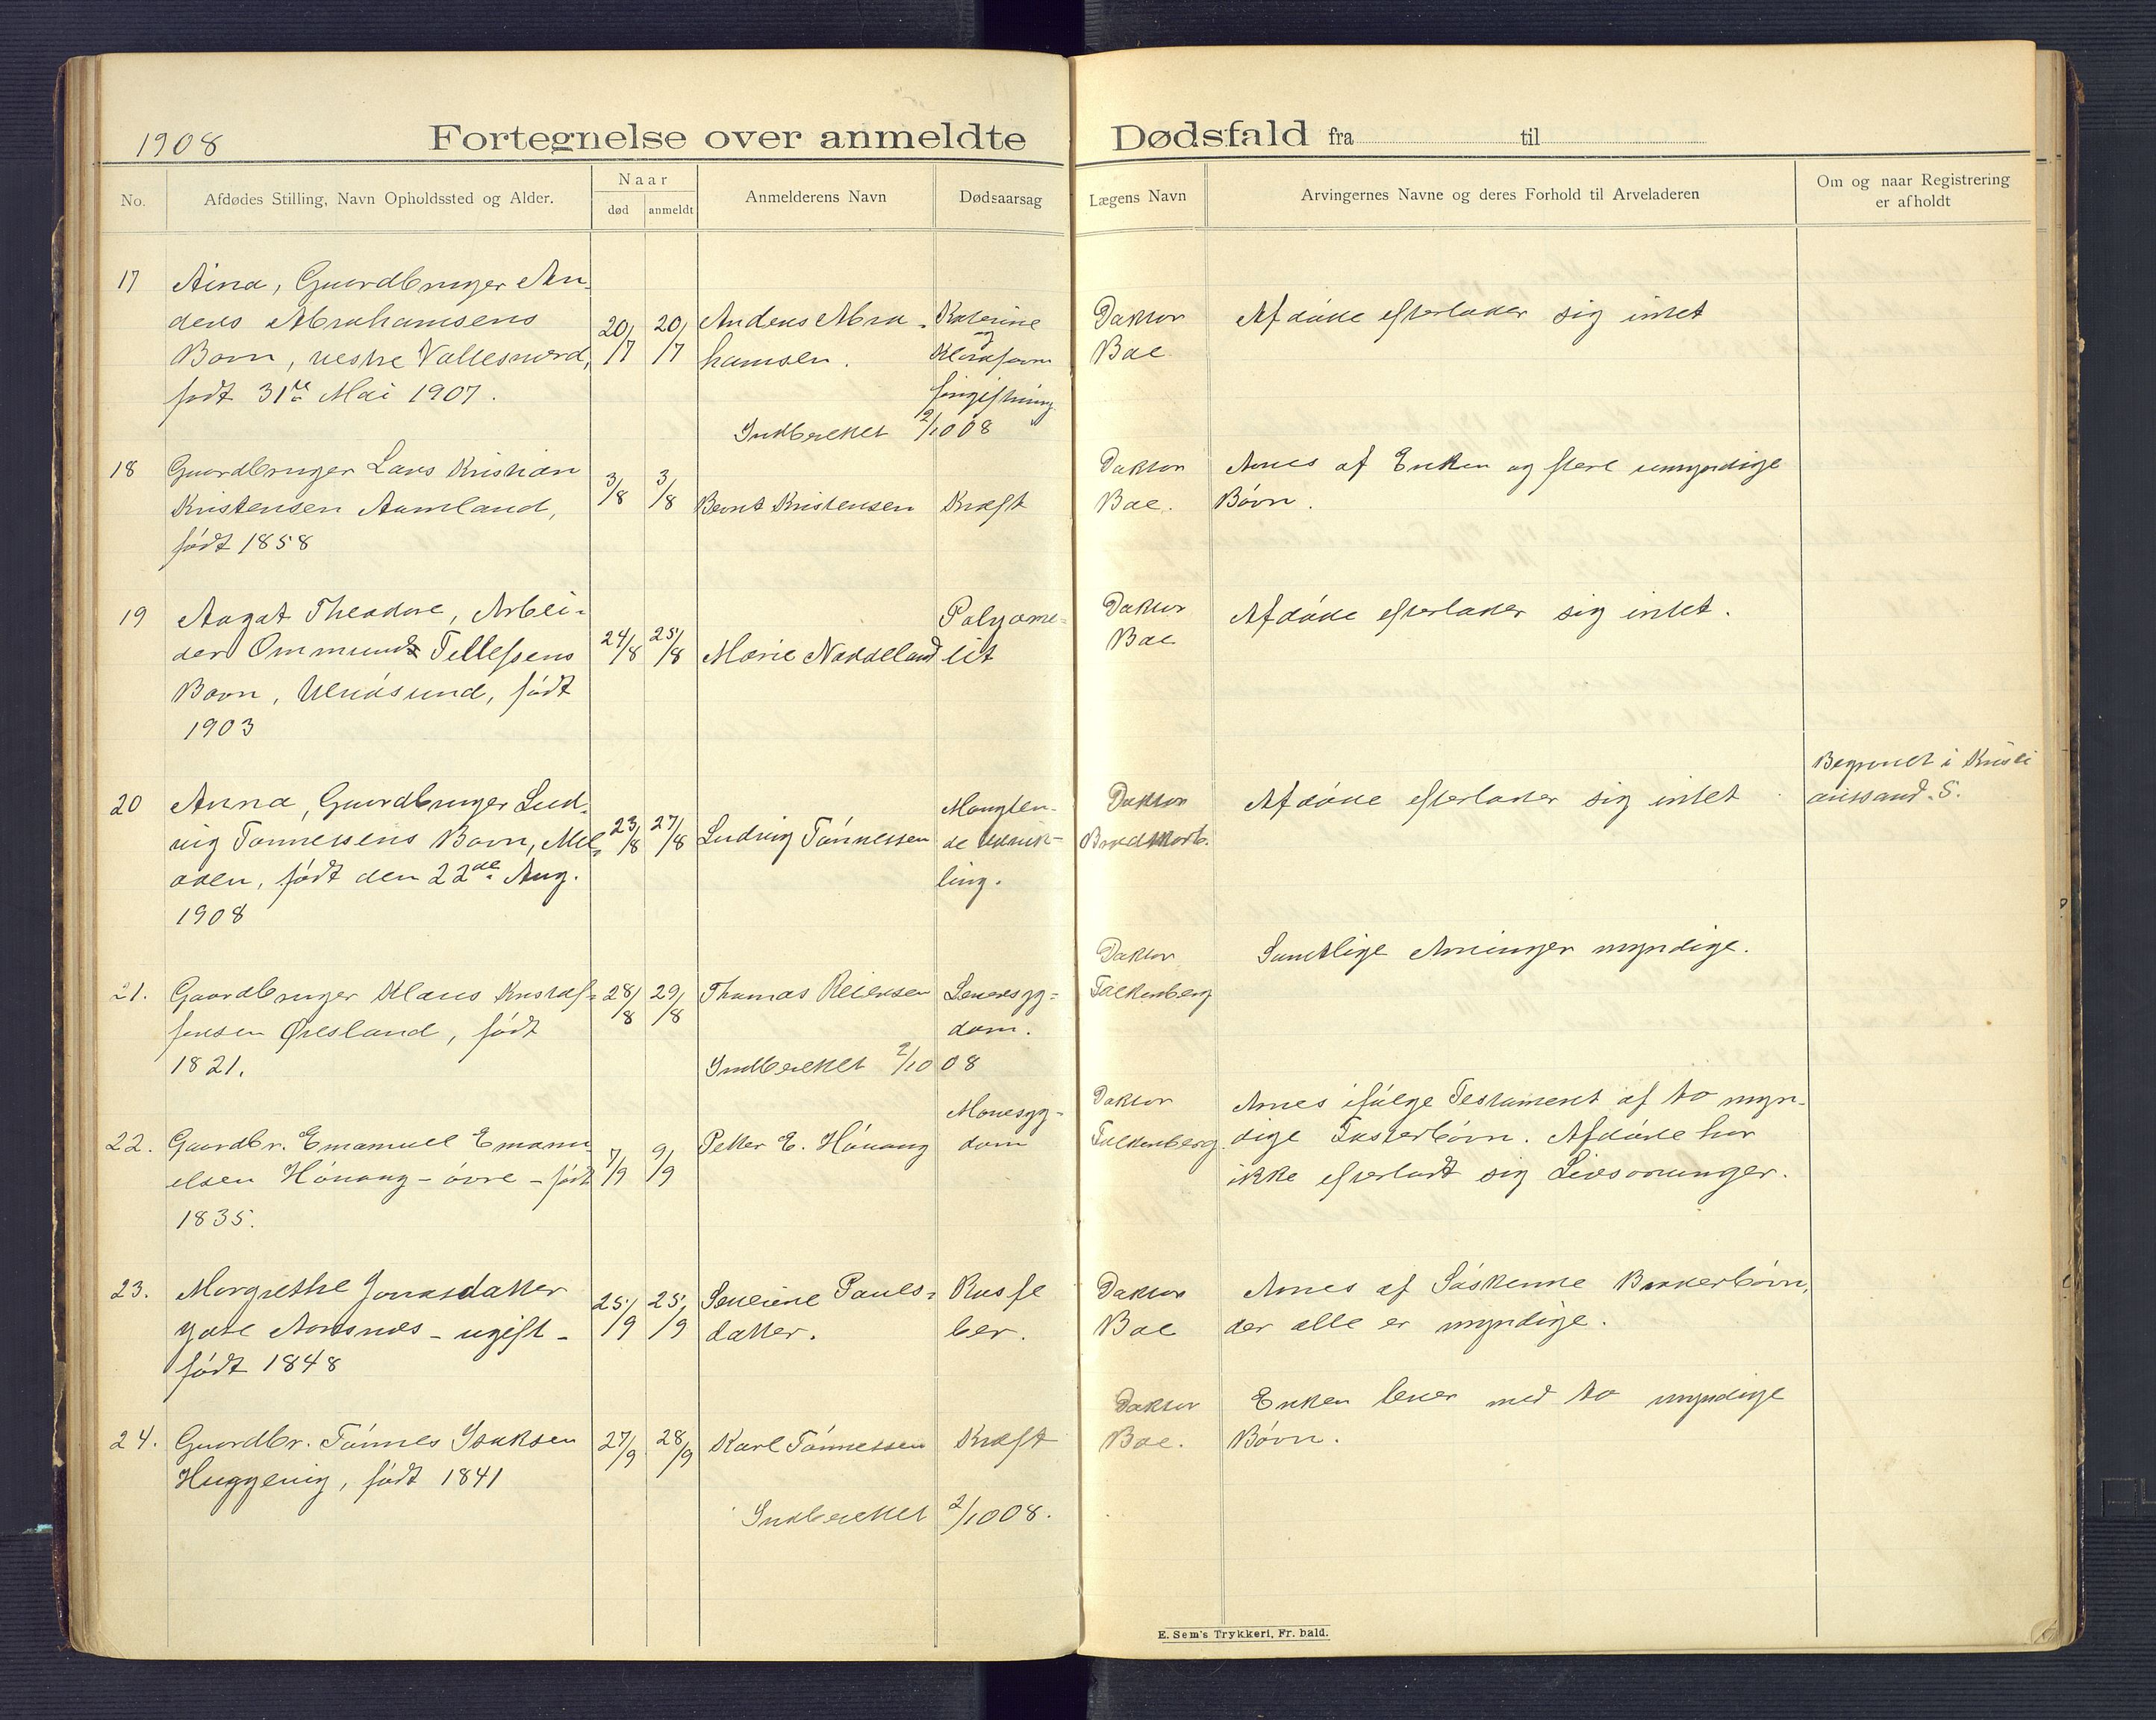 1908
Fortegnelse over anmeldte Dødsfald fra til
No.
Afdødes Stilling, Navn Opholdssted og Alder.
Naar
død
anmeldt
Anmelderens Navn
Dødsaarsag
Lægens Navn
Arvingernes Navne og deres Forhold til Arveladeren
Om og naar Registrering
er afholdt
17
Aina, Gaardbruger An-
ders Abrahamsens
Barn, vestre Vallesværd,
født 31te Mai 1907.
20/7
20/7
Anders Abra-
hamsen.
og
forgiftning
Doktor
Boe
Afdøde efterlader sig intet
Indberettet 2/10 08
18
Gaardbruger Lars Kristian
Kristensen Aamland,
født 1858
3/8
3/8
Bernt Kristensen
Kræft
Doktor
Boe.
Arves af Enken og flere umyndige
Børn.
19
Aagot Theodore, Arbei-
der Ommund Tellefsens
Barn, Ulvøsund, født
1903
24/8
25/8
Marie Nøddeland
Polyome-
lit
Doktor
Boe
Afdøde efterlader sig intet.
20
Anna, Gaardbruger Lud-
vig Tønnessens Barn,
født den 22de Aug.
1908
23/8
27/8
Ludvig Tønnessen
Manglen-
de Udvik-
ling.
Doktor
Afdøde efterlader sig intet
Begravet i Kristi
anssand. S.
21.
Gaardbruger Klaus Kristof-
fersen Øresland, født
1821.
28/8
29/8
Thomas Reiersen
Leversyg-
dom.
Doktor
Falkenberg
Samtlige Arvinger myndige.
Indberettet 2/10 08
22.
Gaardbr. Emanuel Emanu-
elsen Hønang - øvre - født
1835.
7/9
9/9
Petter E. Hønang
Mavesyg-
dom
Doktor
Falkenberg.
Arves ifølge Testament af to myn-
dige Fosterbørn. Afdøde har
ikke efterladt sig Livsarvinger.
23.
Margrethe Jonasdatter
ytre Aarsnes - ugift -
født 1848
25/9
25/9
Severine Pauls-
datter.
ber.
Doktor
Boe
Arves af Søskende Brøderbørn,
der alle er myndige.
24.
Gaardbr. Tønnes Isaksen
Huggevig, født 1841
27/9
28/9
Karl Tønnessen
Kræft
Doktor
Boe.
Enken lever med to myndige
Børn.
Indberettet 2/10 08.
E. Sem's Trykkeri, Fr. hald.